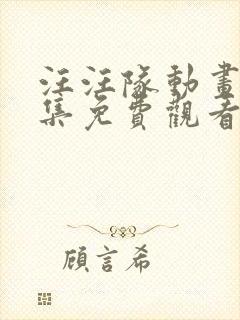 汪汪隊動畫
集免費觀看
顧言希